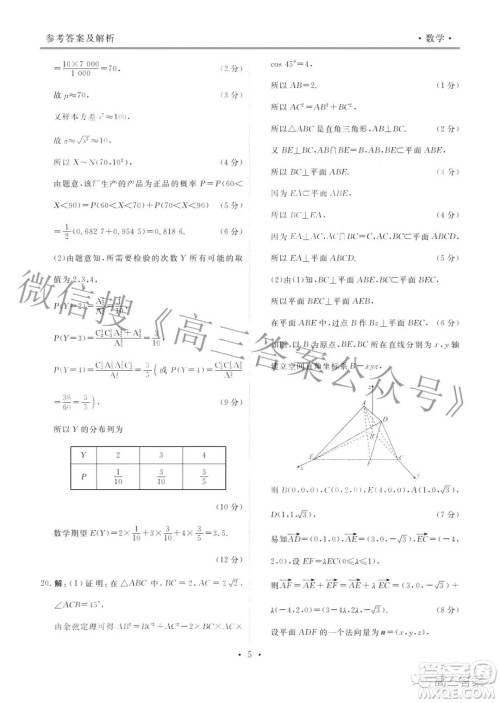 参考答案及解析
·数学·
=10×7 000/1 000=70,  (2 分)
故 μ≈70,  (3 分)
又样本方差 s²=
故 σ≈√s²≈10,
所以 X~N(70,10²).  (4 分)
由题意, 该厂生产的产品为正品的概率 P=P(60<
X<90)=P(60<X<70)+P(70≤X<90)  (5 分)
=1/2(0.682 7+0.954 5)=0.818 6.  (6 分)
(2)由题意知, 所需要检验的次数 Y 所有可能的取
值为 2,3,4,
P(Y=2)=
P(Y=3)=
P(Y=4)=
36/60=3/5).  (9 分)
所以 Y 的分布列为
Y 2 3 4
P 1/10 3/10 3/5
(10 分)
数学期望 E(Y)=2×1/10+3×3/10+4×3/5=3.5.
(12 分)
20. 解:(1)证明:在 △ABC 中, BC=2√2,
∠ACB=45°,
由余弦定理可得 AB²=AC²+BC²-2AC×BC×
cos 45°=4,
所以 AB=2.  (1 分)
所以 AC²=AB²+BC²,
所以△ABC 是直角三角形, AB⊥BC.  (2 分)
又 BE⊥BC, AB∩BE=B,
所以 BC⊥平面 ABE.  (3 分)
因为 EA⊂平面 ABE,
所以 BC⊥EA,  (4 分)
因为 EA⊥AB, AB∩BC=B,
所以 EA⊥平面 ABCD.  (5 分)
(2)由(1)知, BC⊥平面
BC⊂平面
在平面 ABE 中, 过点 B 作 Bz⊥平面 BC
如图, 以 B 为原点, BE,BC 所在直线分别为 x,y 轴
建立空间直角坐标系 B-xyz,
z
A
D
B
C
E
F
x
y
则 B(0,0,0), C(0,2,0), E(4,0,0), A(1,0,√3),
D(1,1,√3).  (7 分)
易知AD=(0,1,0), AE=(3,0,-√3), EC=(-4,
2,0), 设 EF=λEC(0≤λ≤1),
则AF=AE+EF=AE+λEC=(3,0,-√3)+
λ(-4,2,0)=(3-4λ,2λ,-√3).  (8 分)
设平面 ADF 的一个法向量为 n=(x,y,z),
· 5 ·
微信搜《高三答案公众号》
高三答案